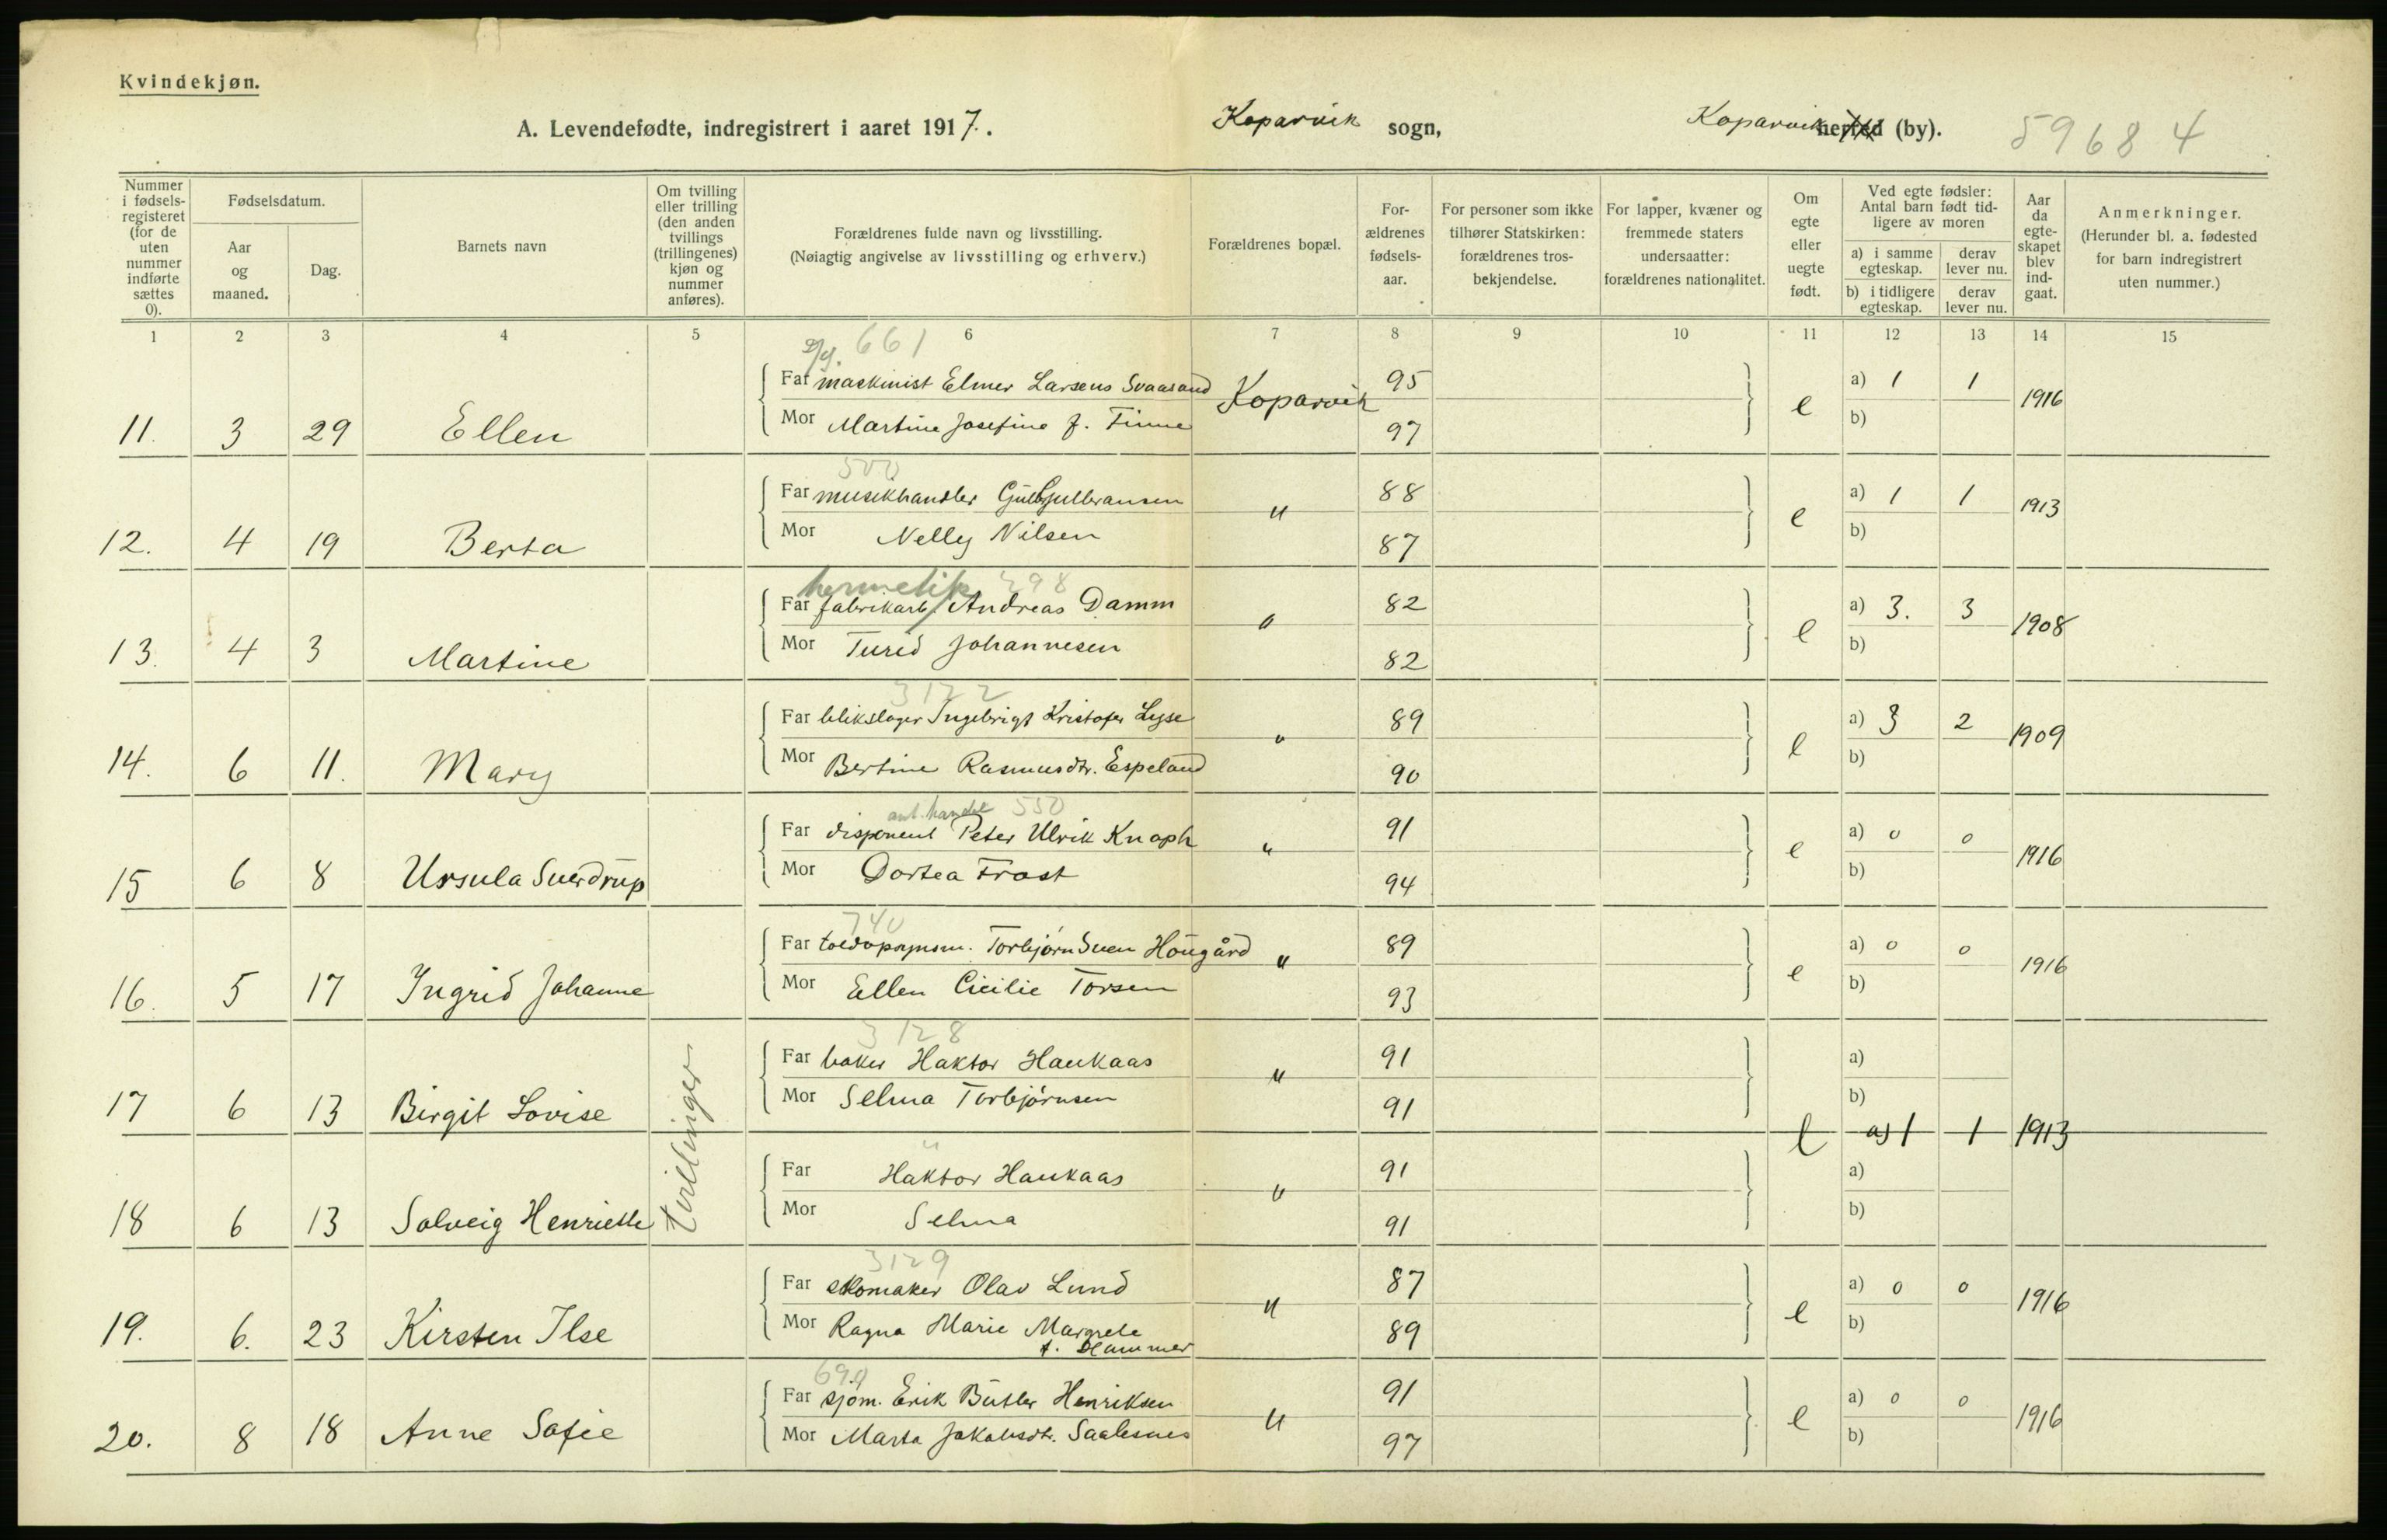 Kvindekjøn.
A. Levendefødte, indregistrert i aaret 1917. Kopervik sogn, Kopervik herred (by). 59684
Nummer i fødsels-registeret (for de uten nummer indførte sættes 0).
Fødselsdatum.
Aar og maaned.
Dag.
Barnets navn
Om tvilling eller trilling (den anden tvillings (trillingenes) kjøn og nummer anføres).
Forældrenes fulde navn og livsstilling.
(Nøiagtig angivelse av livsstilling og erhverv.)
Forældrenes bopæl.
For-ældrenes fødsels-aar.
For personer som ikke tilhører Statskirken: forældrenes tros-bekjendelse.
For lapper, kvæner og fremmede staters undersaatter: forældrenes nationalitet.
Om egte eller uegte født.
Ved egte fødsler: Antal barn født tid-ligere av moren
a) i samme egteskap.
derav lever nu.
b) i tidligere egteskap.
derav lever nu.
Aar da egte-skapet blev ind-gaat.
Anmerkninger.
(Herunder bl. a. fødested for barn indregistrert uten nummer.)
1 2 3 4 5 6 7 8 9 10 11 12 13 14 15
661
Far maskinist Elmer Larsens Svaasand Koparvik 95 a) 1 1
11. 3 29 Ellen e 1916
Mor Martine Josefine f. Finne 97 b)
500
Far musikhandler Gulb Gulbransen 88 a) 1 1
12. 4 19 Berta " e 1913
Mor Nelly Nilsen 87 b)
hermetik 298
Far fabrikarb. Andreas Damm 82 a) 3. 3
13. 4 3 Martine " e 1908
Mor Turid Johannesen 82 b)
3122
Far blikslager Ingebrigt Kristofer Lyse 89 a) 3 2
14. 6 11. Mary " e 1909
Mor Bertine Rasmusdtr. Espeland 90 b)
ant. handel 550
Far disponent Peter Ulrik Knaph 91 a) 0 0
15 6 8 Ursula Sverdrup " e 1916
Mor Dortea Frost 94 b)
740
Far toldopsynsm. Torbjørn Sven Hougård 89 a) 0 0
16. 5 17 Ingrid Johanne " e 1916
Mor Ellen Cicilie Torsen 93 b)
3128
Far baker Haktor Haukaas 91 a)
17 6 13 Birgit Lovise tvillinger "
Mor Selma Torbjørnsen 91 b)
e a) 1 1 1913
"
Far Haktor Haukaas 91 a)
18 6 13 Solveig Henriette "
Mor Selma 91 b)
3129
Far skomaker Olav Lund 87 a) 0 0
19. 6. 23 Kirsten Ilse " e 1916
Mor Ragna Marie Margrete f. Hammer 89 b)
690
Far sjøm. Erik Butler Henriksen 91 a) 0 0
20. 8 18 Anne Sofie " e 1916
Mor Marta Jakobsdtr. Saalesnes 97 b)